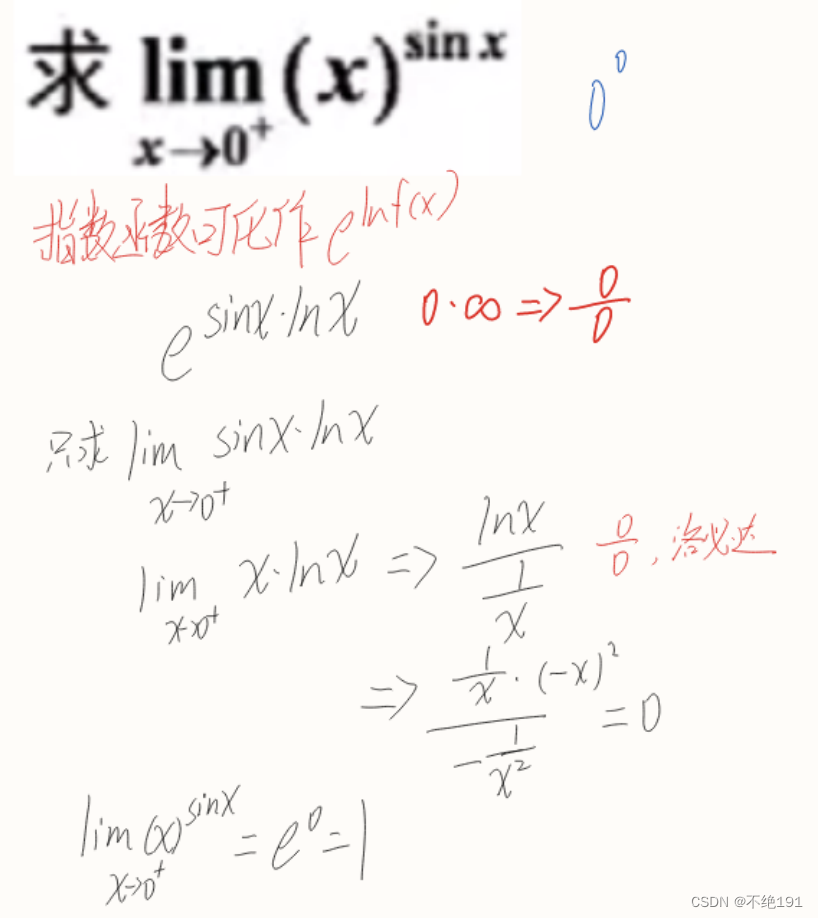 求 lim (x)^sin x
x→0⁺
0⁰
指数函数可化作 e^lnf(x)
e^sinx·lnx 0·∞ => 0/0
只求 lim sinx·lnx
x→0⁺
lim x·lnx => lnx / (1/x) 0/0, 洛必达
x→0⁺
=> (1/x · (-x)²) / (-1/x²) = 0
lim (x)^sinx = e⁰ = 1
x→0⁺
CSDN @不绝191